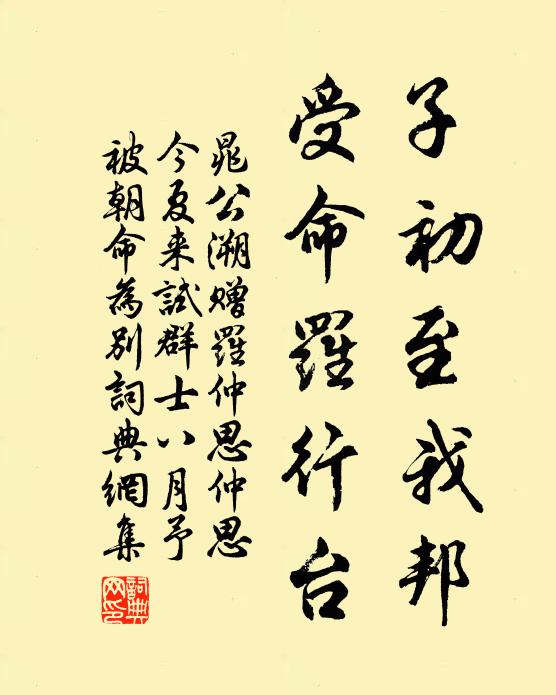 子初至我邦
受命羅行台
晁公溯赠羅仲思仲思
今夏来試群士八月予
被朝命為别詞典網集
詞典网印